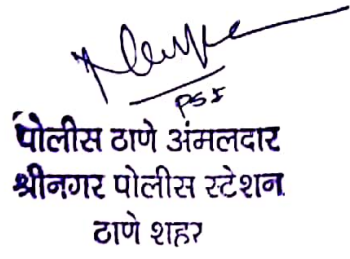 PSI
पोलीस ठाणे अंमलदार
श्रीनगर पोलीस स्टेशन.
ठाणे शहर